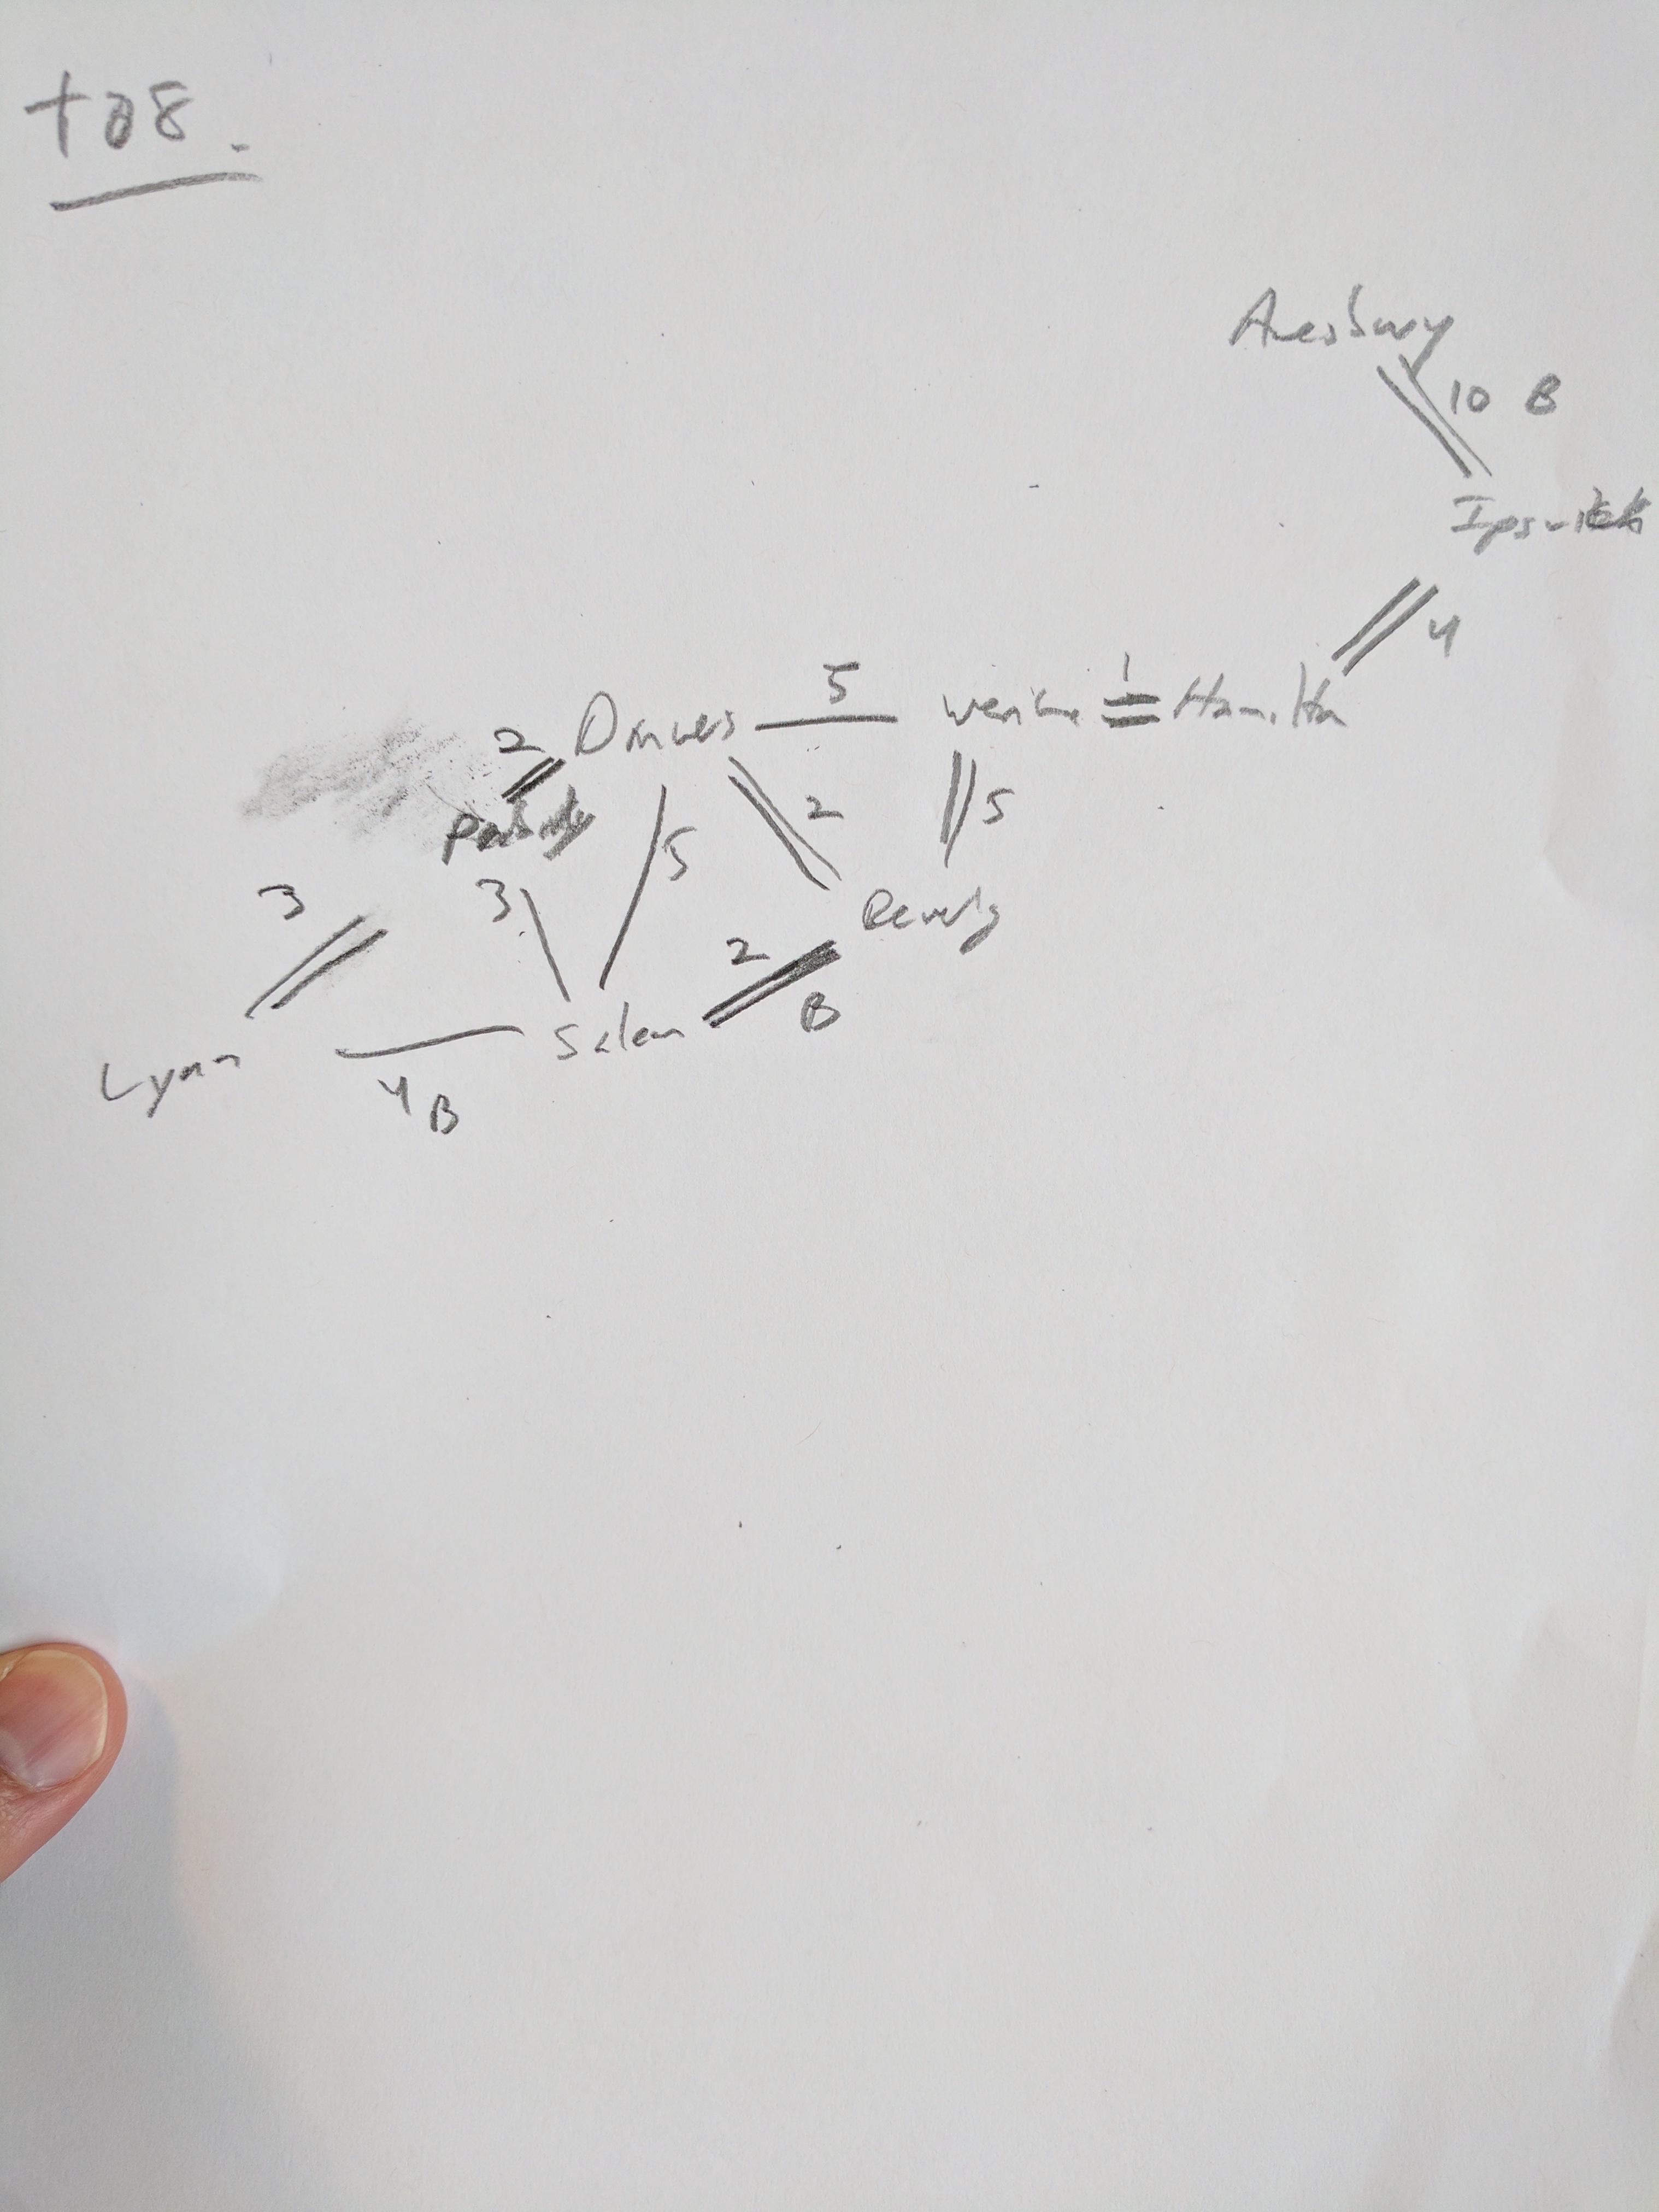 +08.
Amesbury
10 B
Ipswich
4
5
Danvers Wenham 1 Hamilton
2
Peabody
5 2 5
3 3
Beverly
2
B
Lynn Salem
4 B